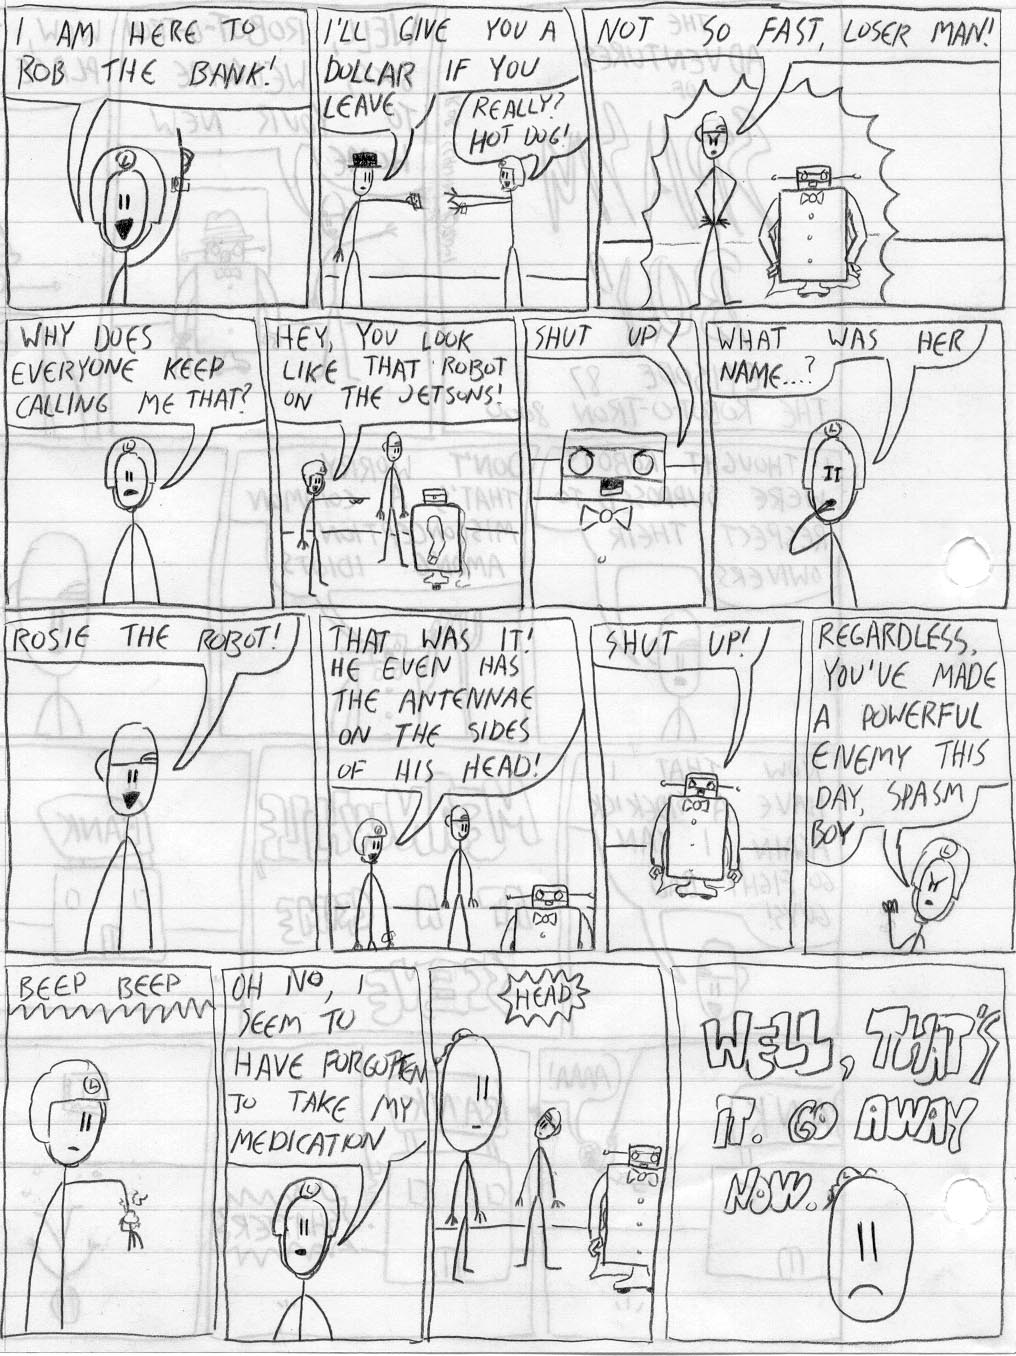 I AM HERE TO
ROB THE BANK!
I'LL GIVE YOU A
DOLLAR IF YOU
LEAVE
REALLY?
HOT DOG!
NOT SO FAST, LOSER MAN!
WHY DOES
EVERYONE KEEP
CALLING ME THAT?
HEY, YOU LOOK
LIKE THAT ROBOT
ON THE JETSONS!
SHUT UP
WHAT WAS HER
NAME...?
ROSIE THE ROBOT!
THAT WAS IT!
HE EVEN HAS
THE ANTENNAE
ON THE SIDES
OF HIS HEAD!
SHUT UP!
REGARDLESS,
YOU'VE MADE
A POWERFUL
ENEMY THIS
DAY, SPASM
BOY
BEEP BEEP
OH NO, I
SEEM TO
HAVE FORGOTTEN
TO TAKE MY
MEDICATION
HEAD
WELL, THAT'S
IT. GO AWAY
NOW.